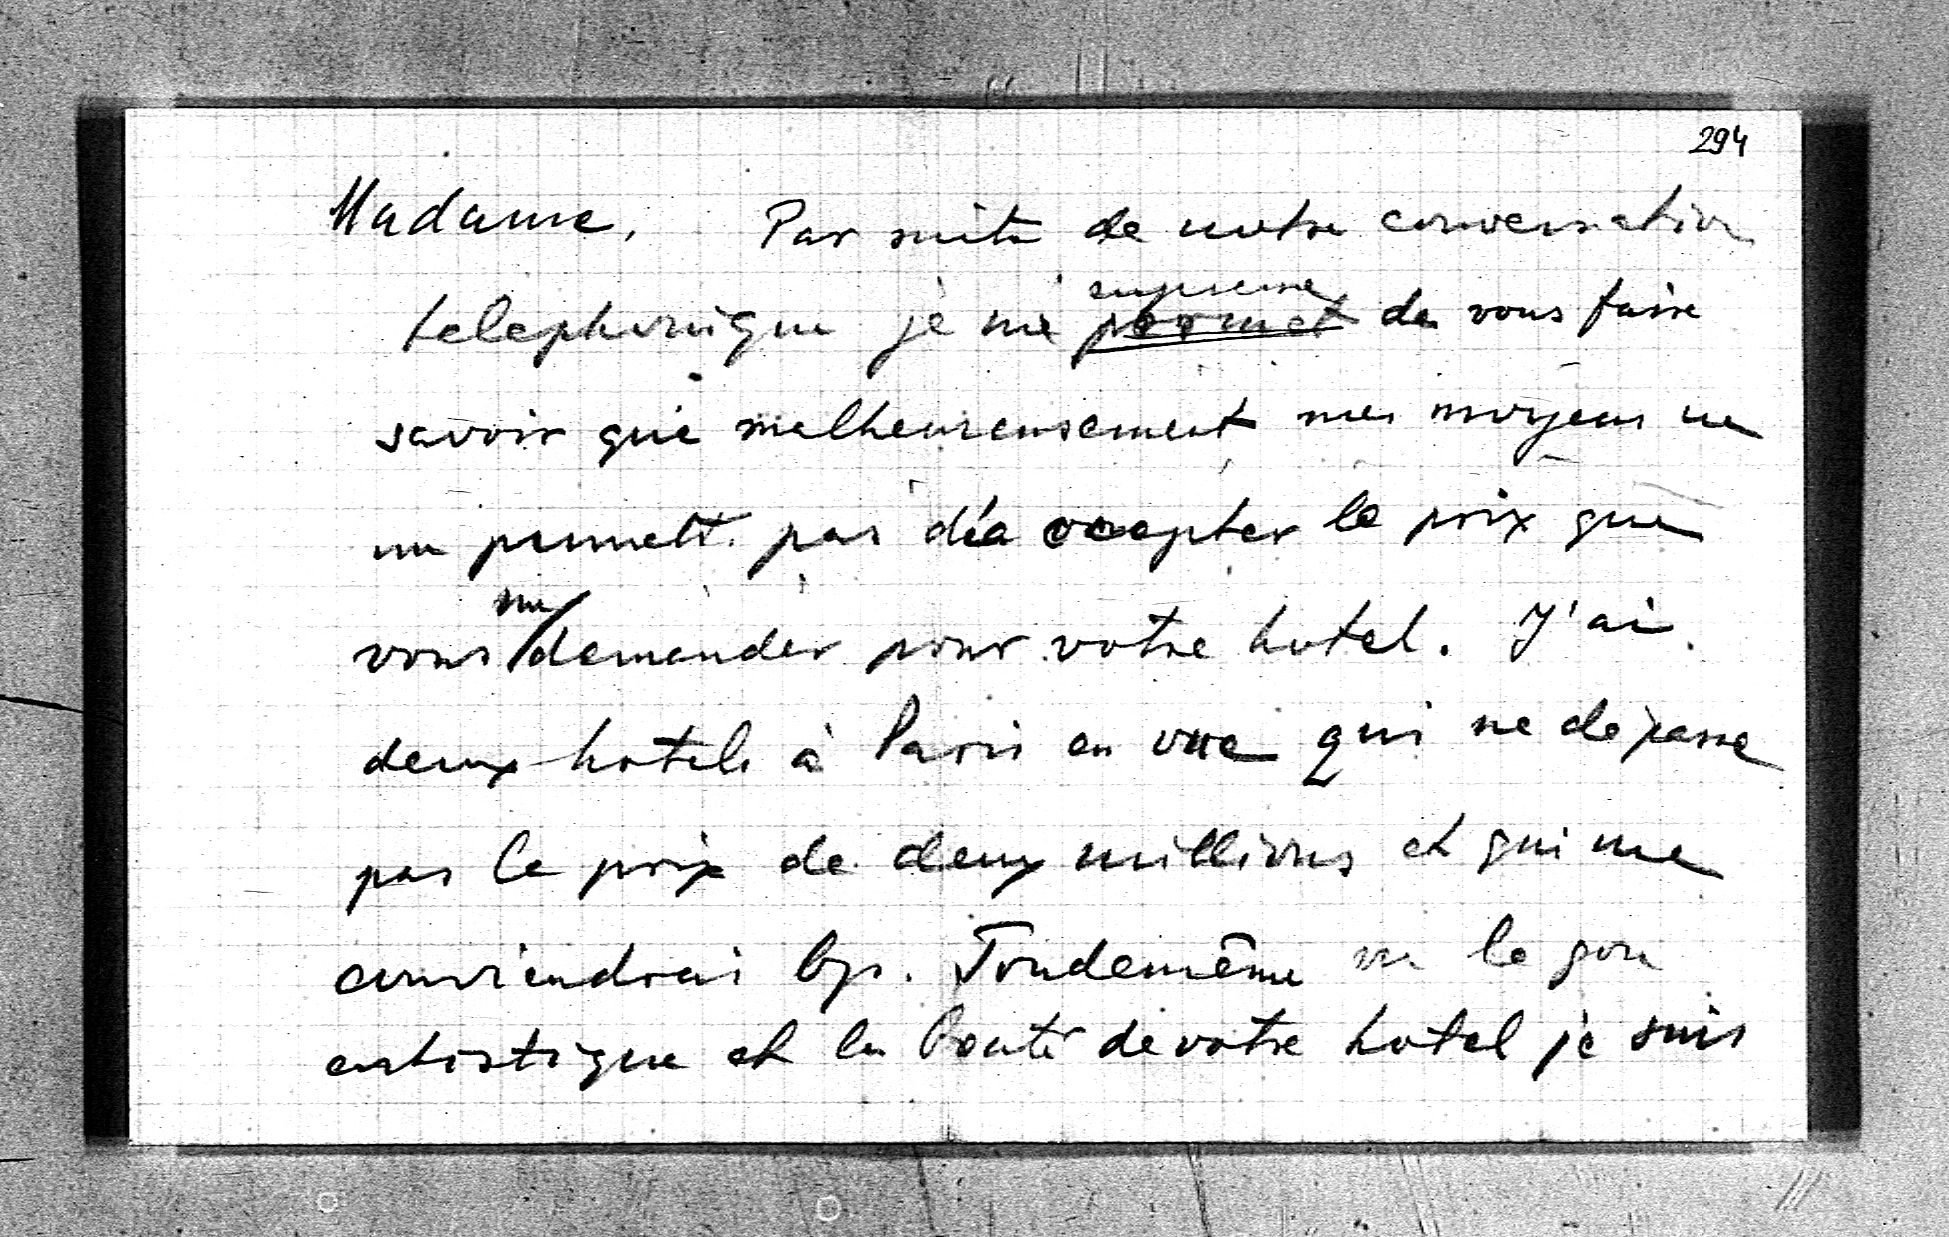 294
Madame, Par suite de notre conversation
empresse
telephonique je me permet de vous faire
savoir que malheureusement mes moyens ne
me permett. pas d'a ccepter le prix que
me
vous demander pour votre hotel. J'ai
deux hotels à Paris en vue qui ne depasse
pas le prix de deux millions et qui me
conviendrai bp. Toudemême vu le gou
artistique et la beauté de votre hotel je suis